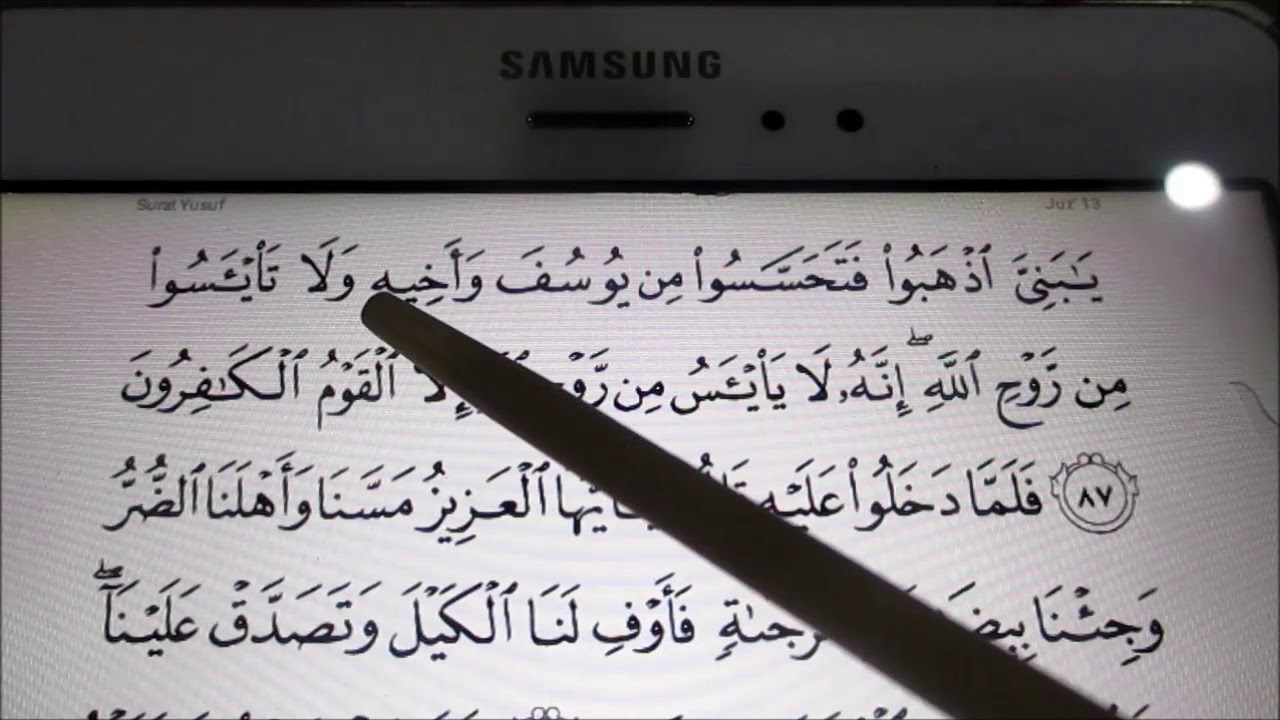 SAMSUNG
Surat Yusuf
Juz' 13
يَـٰبَنِىَّ ٱذْهَبُوا۟ فَتَحَسَّسُوا۟ مِن يُوسُفَ وَأَخِيهِ وَلَا تَا۟يْـَٔسُوا۟
مِن رَّوْحِ ٱللَّهِ ۖ إِنَّهُۥ لَا يَا۟يْـَٔسُ مِن رَّوْحِ إِلَّا ٱلْقَوْمُ ٱلْكَـٰفِرُونَ
٨٧ فَلَمَّا دَخَلُوا۟ عَلَيْهِ ٱلْعَزِيزُ مَسَّنَا وَأَهْلَنَا ٱلضُّرُّ
وَجِئْنَا فَأَوْفِ لَنَا ٱلْكَيْلَ وَتَصَدَّقْ عَلَيْنَآ ۖ